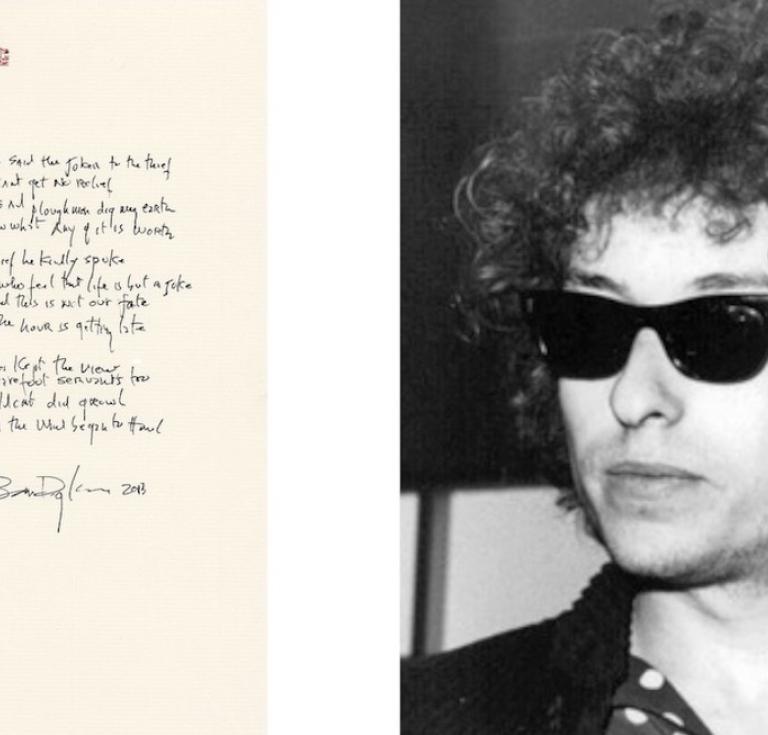 said the Joker to the thief
get no relief
ploughmen dig my earth
what any of it is worth
he kindly spoke
who feel that life is but a joke
this is not our fate
hour is getting late
kept the view
servants too
did growl
the wind began to Howl
Bob Dylan 2013